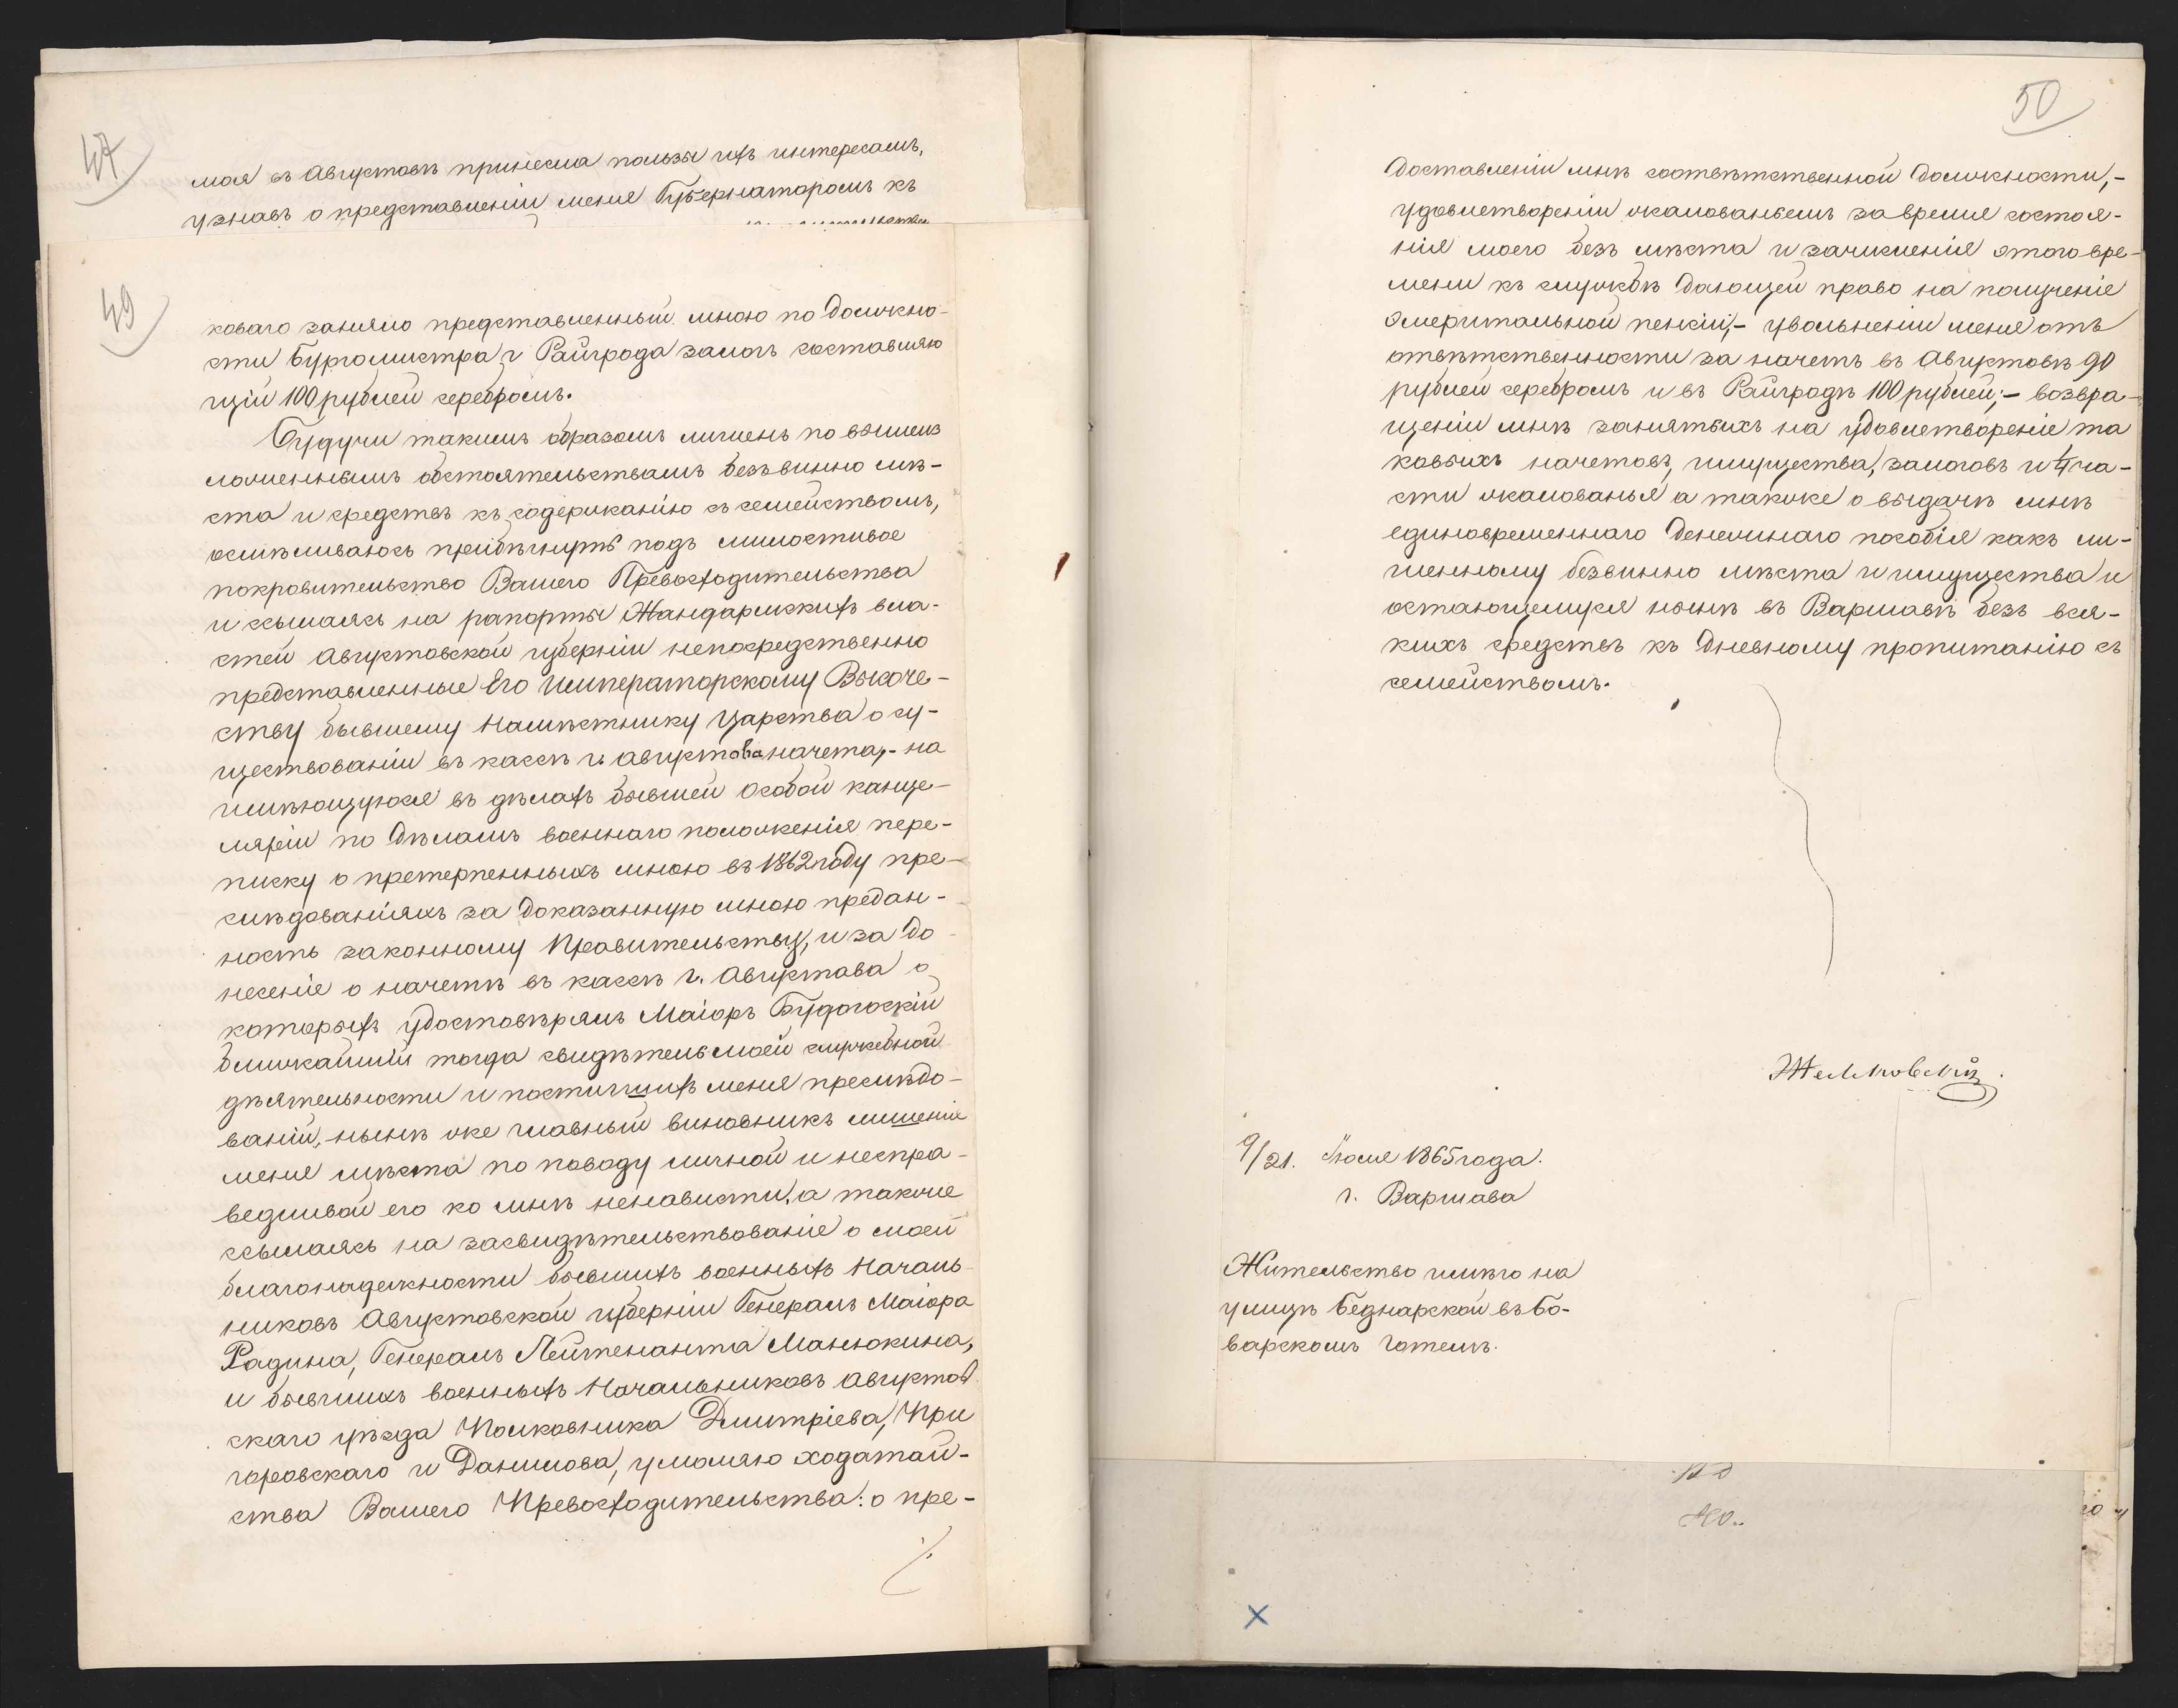 47
моя въ Августовѣ принесла пользы ихъ интересамъ,
узнавъ о представленіи меня Губернаторомъ къ
49
коваго заняло представленный мною по должно-
сти Бургомистра г Райграда залогъ составляю
щій 100 рублей серебромъ.
Будучи такимъ образомъ лишенъ по вышеиз
ложеннымъ обстоятельствамъ безъвинно мѣ-
ста и средствъ къ содержанію съ семействомъ,
осмѣливаюсь прибѣгнуть подъ милостивое
покровительство Вашего Превосходительства
и ссылаясь на рапорты Жандармскихъ вла-
стей Августовской губерніи непосредственно
представленные Его Императорскому Высоче-
ству бывшему Намѣстнику Царства о су-
ществованіи въ кассѣ г. Августова начета,- на
имѣющуюся въ дѣлахъ бывшей Особой канце-
ляріи по Дѣламъ военнаго положенія пере-
писку о претерпенныхъ мною въ 1862 году пре-
слѣдованіяхъ за доказанную мною предан-
ность законному Правительству, и за до
несеніе о начетѣ въ кассѣ г. Августава о
которыхъ удостовѣрялъ Маіоръ Будогоскій
ближайшій тогда свидѣтель моей служебной
дѣятельности и постигшихъ меня преслѣдо-
ваній, нынѣ же главный виновникъ лишенія
меня мѣста по поводу личной и неспра-
ведливой его ко мнѣ ненависти, а также
ссылаясь на засвидѣтельствованіе о моей
благонадежности бывшихъ военныхъ Началь
никовъ Августовской губерніи Генералъ Маіора
Радина, Генералъ Лейтенанта Манюкина,
и бывшихъ военныхъ Начальниковъ Августов
скаго уѣзда Полковника Дмитріева, При
горовскаго и Данилова, умоляю ходатай-
ства Вашего Превосходительства: о пре-
50
доставленіи мнѣ соотвѣтственной должности,-
удовлетвореніи жалованьемъ за время состоя-
нія моего безъ мѣста и зачисленія этого вре-
мени къ службѣ дающей право на полученіе
эмеритальной пенсіи;- увольненіи меня отъ
отвѣтственности за начетъ въ Августовѣ 90
рублей серебромъ и въ Райградѣ 100 рублей;- возвра-
щеніи мнѣ занятыхъ на удовлетвореніе та
ковыхъ начетовъ, имущества, залоговъ и ¼ ча-
сти жалованья а также о выдачѣ мнѣ
единовременнаго денежнаго пособія какъ ли-
шенному безвинно мѣста и имущества и
остающемуся нынѣ въ Варшавѣ безъ вся-
кихъ средствъ къ дневному пропитанію съ
семействомъ.
Желковскій.
9/21. Іюля 1865 года.
г. Варшава
Жительство имѣю на
улицѣ Беднарской въ Бо-
варскомъ Готелѣ.